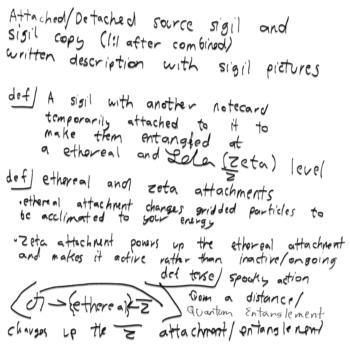 Attached/Detached source sigil and
sigil copy (1:1 after combined)
written description with sigil pictures
def/ A sigil with another notecard
temporarily attached to it to
make them entangled at
a ethereal and (Zeta) level
def/ ethereal and zeta attachments
·ethereal attachment changes gridded particles to
be acclimated to your energy
·Zeta attachment powers up the ethereal attachment
and makes it active rather than inactive/ongoing
spooky action
{ethereal}
from a distance/
Quantum Entanglement
changes up the attachment/entanglement